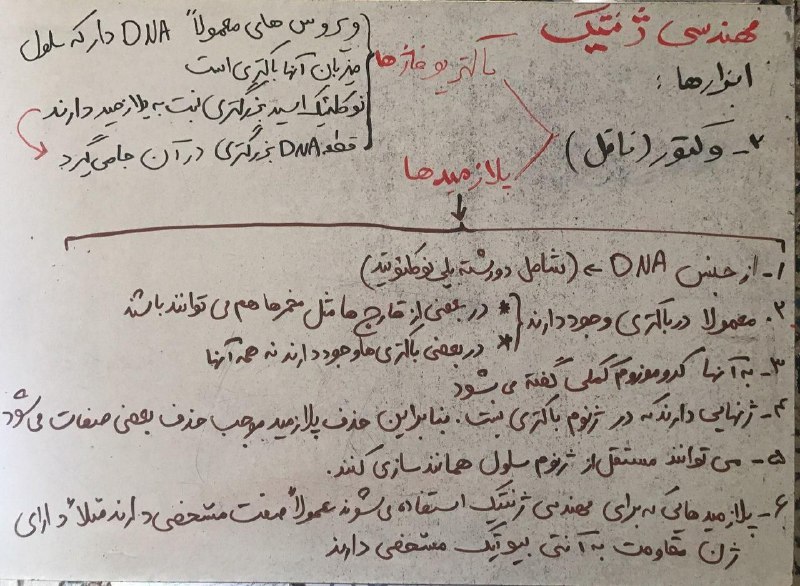 مهندسی ژنتیک
ابزارها :
۲- وکتور (ناقل)
باکتریوفاژها
ویروس های معمولاً DNA دار که سلول
میزبان آنها باکتری است
نوکلئیک اسید بزرگتری نسبت به پلازمید دارند
قطعه DNA بزرگتری در آن جا می گیرد
پلازمیدها
۱- از جنس DNA ← (شامل دو رشته پلی نوکلئوتید)
۲. معمولا در باکتری وجود دارند
* در بعضی از قارچ ها مثل مخمرها هم می توانند باشند
* در بعضی باکتری ها وجود دارند نه همه آنها
۳- به آنها کروموزوم کمکی گفته می شود
۴- ژنهایی دارند که در ژنوم باکتری نیست. بنابراین حذف پلازمید موجب حذف بعضی صفات می شود
۵- می توانند مستقل از ژنوم سلول همانندسازی کنند.
۶- پلازمیدهایی که برای مهندسی ژنتیک استفاده می شوند معمولاً صفت مشخصی دارند مثلاً دارای
ژن مقاومت به آنتی بیوتیک مشخصی دارند